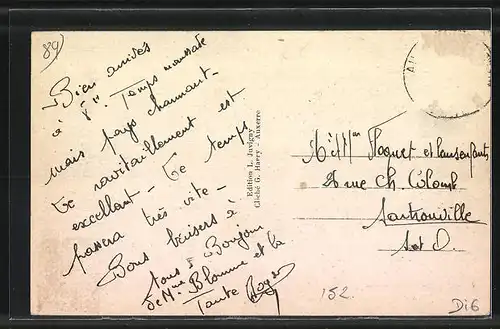 89)
Bien arrivés
à Temps maussade
mais pays charmant -
Le ravitaillement est
excellent - Le temps
passera très vite -
Bons baisers à
tous - Bonjour
de Mme Blomme et la
Tante
Edition L. Juvigny
Cliché G. Havry - Auxerre
Mr et Mme Floquet et leurs enfants
2 rue Ch. Colomb
Sartrouville
S et O.
152
Di6